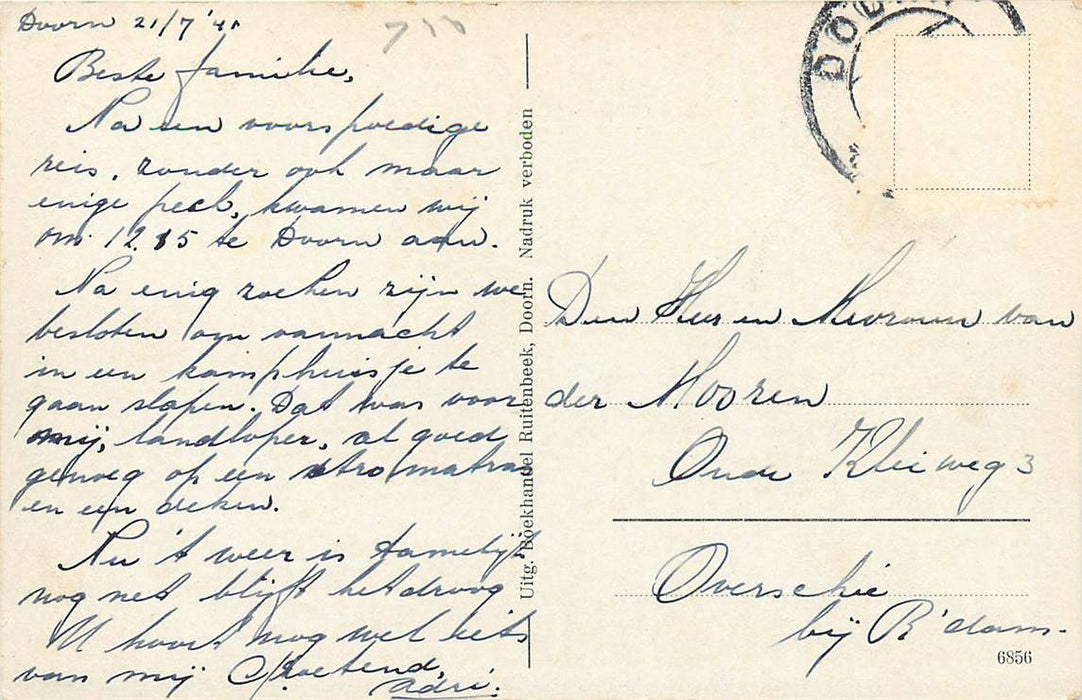 Doorn 21/7 '41
Beste familie,
Na een voorspoedige
reis, zonder ook maar
enige pech, kwamen wij
om 12.15 te Doorn aan.
Na enig zoeken zijn we
besloten om vannacht
in een kamphuisje te
gaan slapen. Dat was voor
mij, landloper, al goed
genoeg op een stro matras
en een deken.
Nu 't weer is tamelijk
nog net blijft het droog
U hoort nog wel iets
van mij Groetend,
Adri.
Uitg. Boekhandel Ruitenbeek, Doorn. Nadruk verboden
DOORN
Den Heer en Mevrouw van
der Hooren
Oude Kleiweg 3
Overschie
bij R'dam.
6856